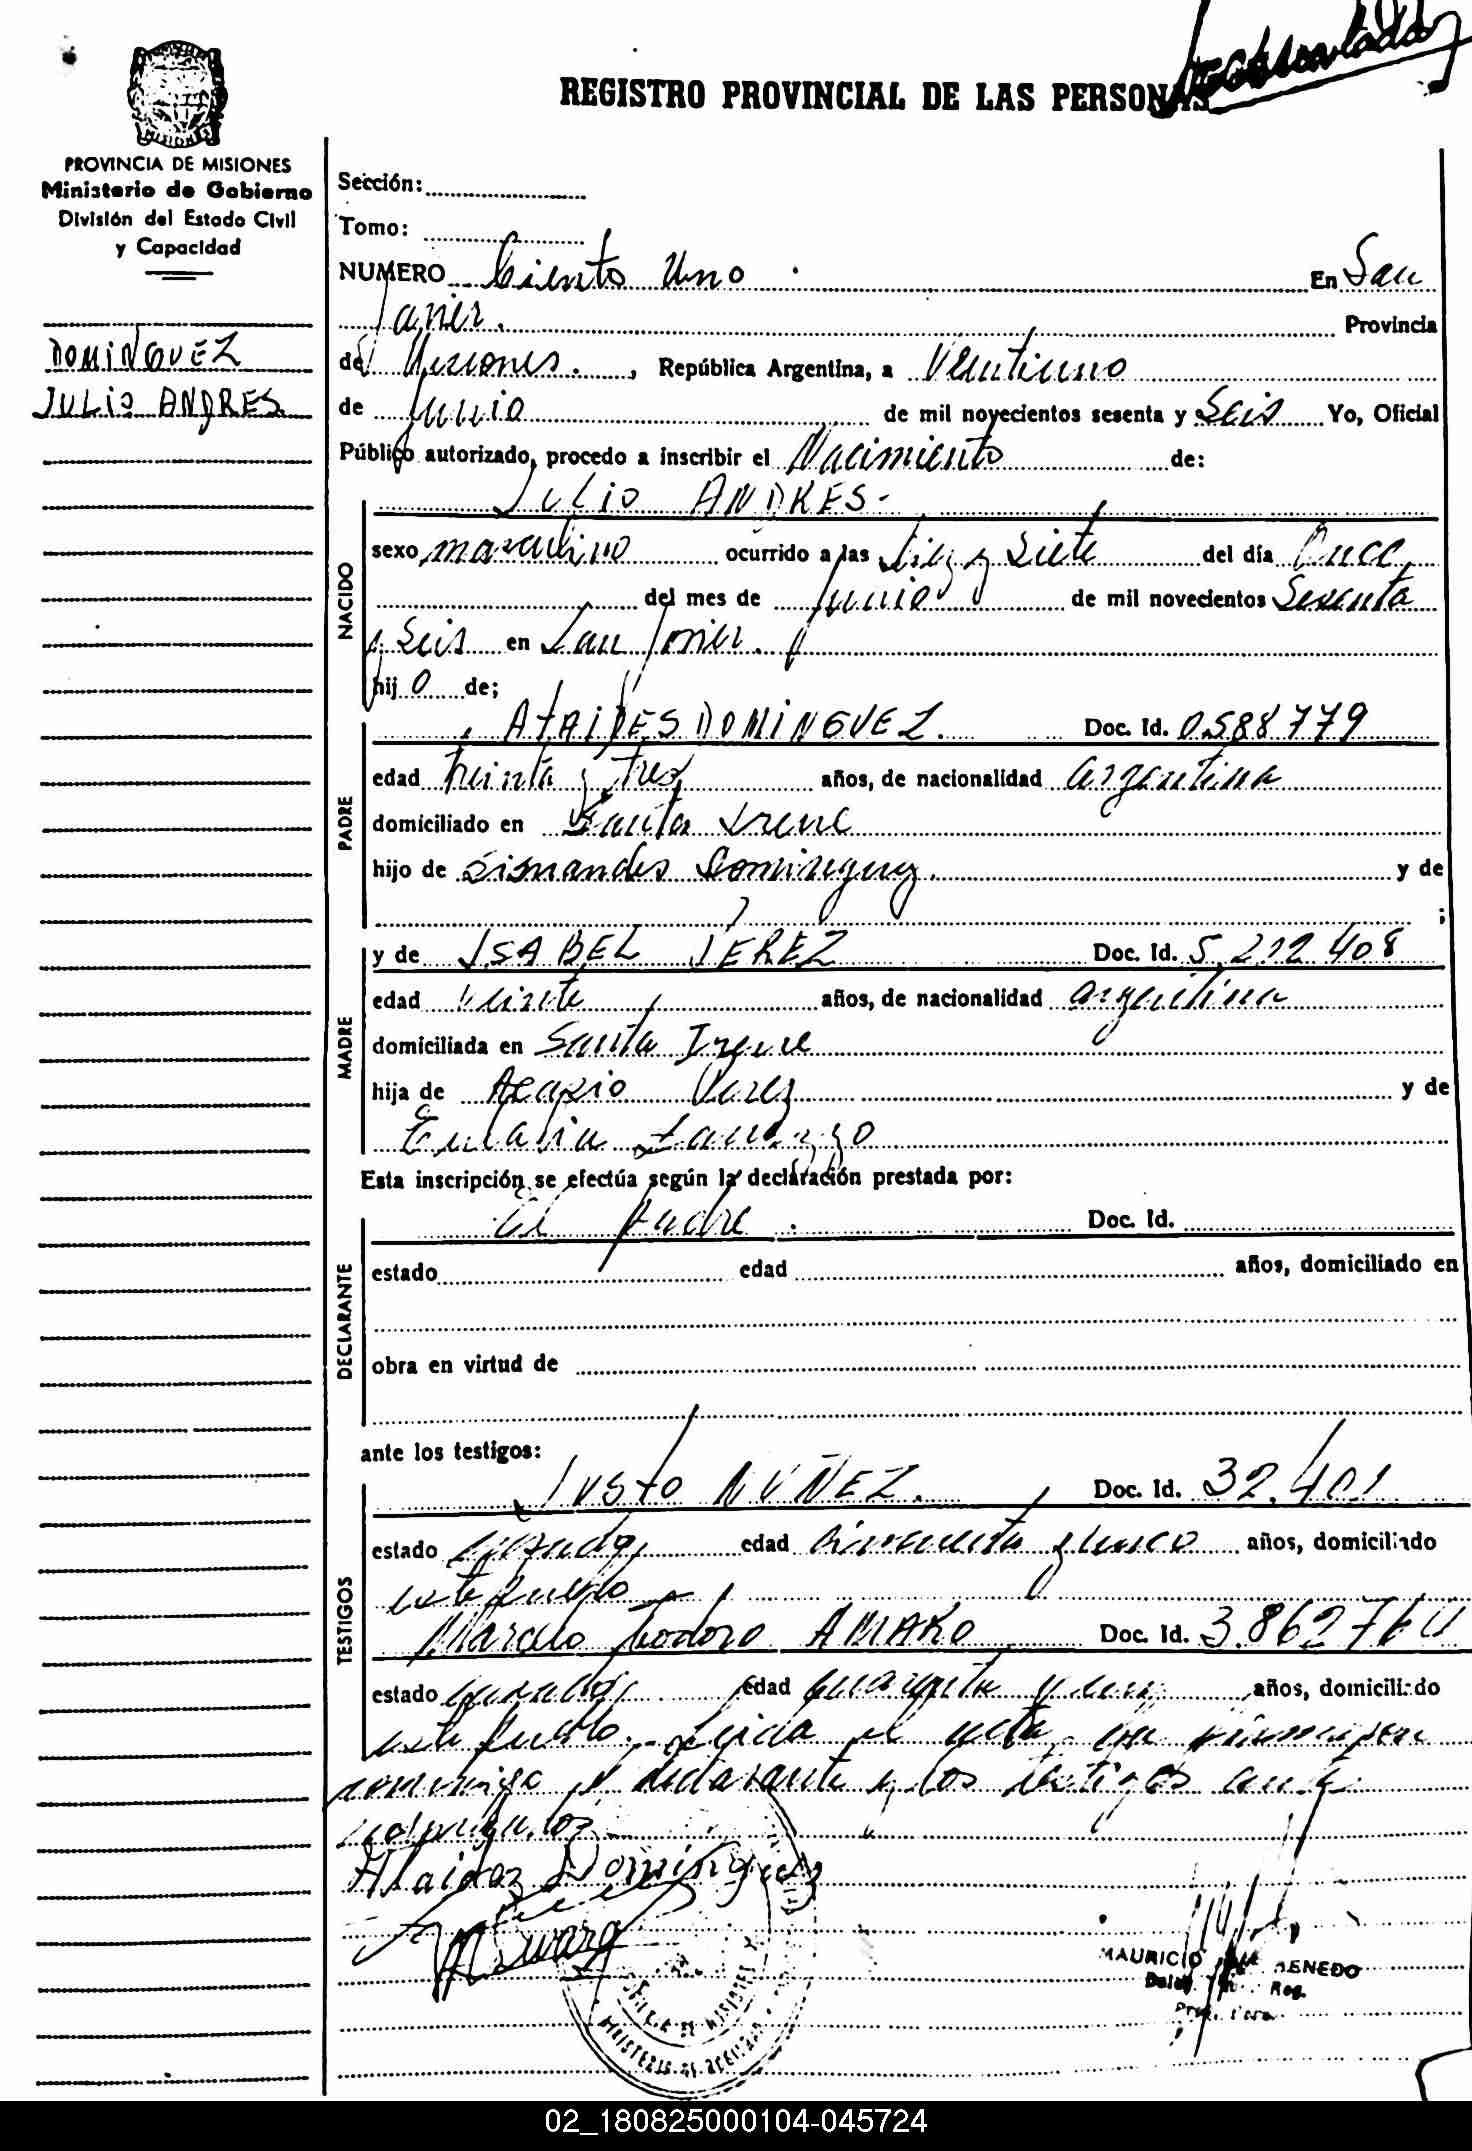 REGISTRO PROVINCIAL DE LAS PERSONAS
PROVINCIA DE MISIONES
Ministerio de Gobierno
División del Estado Civil
y Capacidad
DOMINGUEZ
JULIO ANDRES
Sección:
Tomo:
NUMERO Ciento Uno . En San
Javier. Provincia
de Misiones. , República Argentina, a Veintiuno
de Junio de mil novecientos sesenta y Seis Yo, Oficial
Público autorizado, procedo a inscribir el Nacimiento de:
NACIDO
JULIO ANDRES -
sexo masculino ocurrido a las diez y Siete del día Once
del mes de Junio de mil novecientos Sesenta
y Seis en San Javier.
hij o de;
PADRE
ATAIDES DOMINGUEZ. Doc. Id. 0588779
edad treinta y tres años, de nacionalidad argentina
domiciliado en Santa Irene
hijo de Sismandes Dominguez. y de
;
MADRE
y de ISABEL Doc. Id. 5.212 408
edad Veinte años, de nacionalidad argentina
domiciliada en Santa Irene
hija de y de
Eulalia
Esta inscripción se efectúa según la declaración prestada por:
DECLARANTE
El padre . Doc. Id.
estado edad años, domiciliado en
obra en virtud de
ante los testigos:
TESTIGOS
JUSTO NÚÑEZ. Doc. Id. 32.401
estado casado, edad cincuenta y cinco años, domiciliado
este pueblo
Marcelo Teodoro AMARO Doc. Id. 3.862
estado casado, edad cuarenta y años, domiciliado
este pueblo. Leida el acta, la firman por
conmigo el declarante y los testigos ante
Ataides Dominguez
MAURICIO
Reg.
02_180825000104-045724